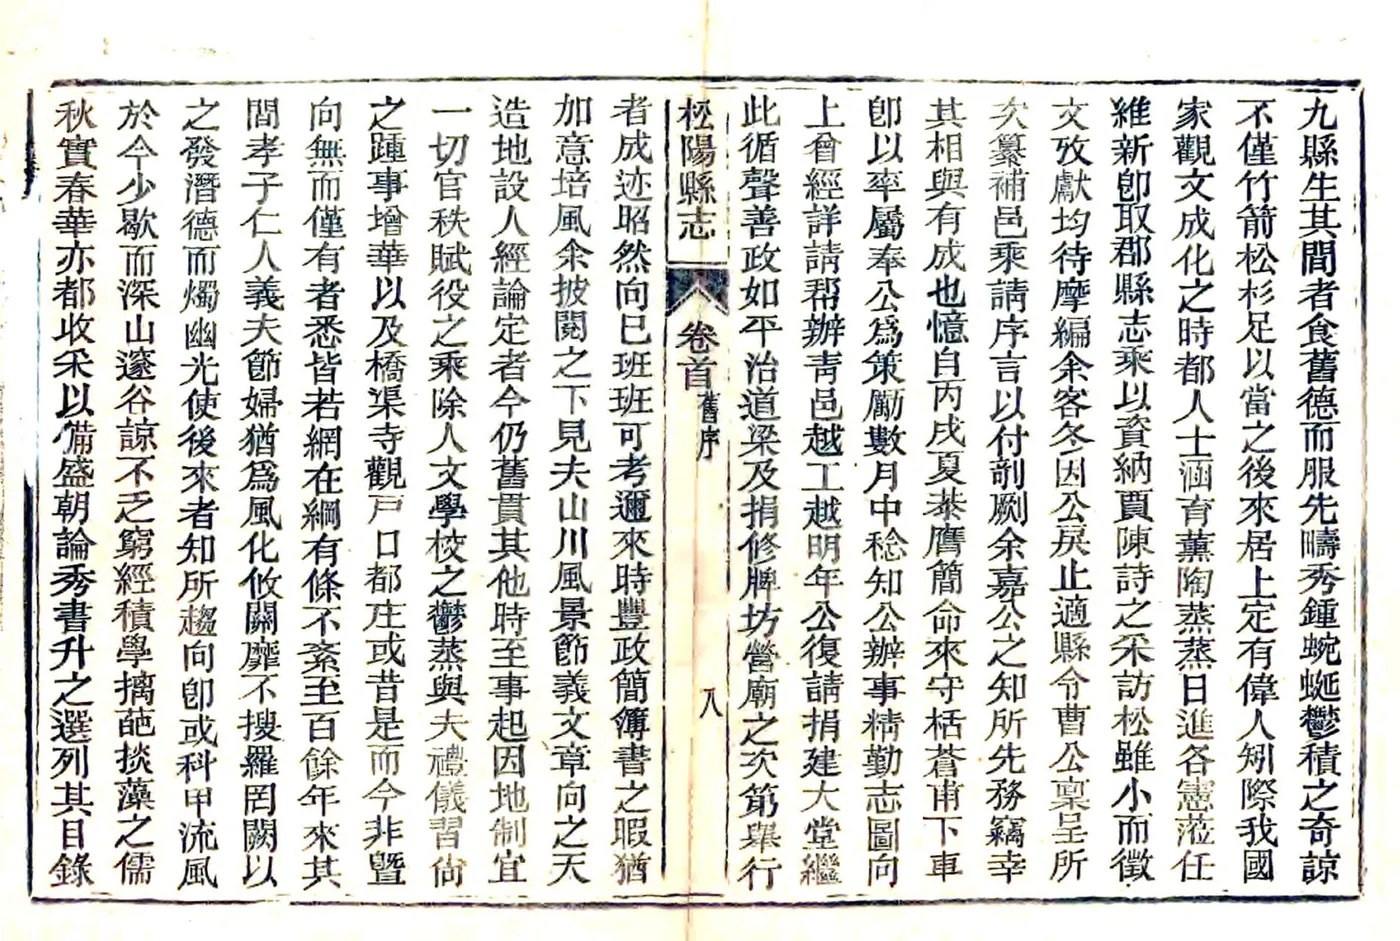 九縣生其間者食舊德而服先疇秀鍾蜿蜒鬱積之奇諒
不僅竹箭松杉足以當之後來居上定有偉人矧際我國
家觀文成化之時都人士涵育薰陶蒸蒸日進各憲蒞任
維新卽取郡縣志乘以資納賈陳詩之采訪松雖小而徵
文攷獻均待摩編余客冬因公戾止適縣令曹公稟呈所
次纂補邑乘請序言以付剞劂余嘉公之知所先務竊幸
其相與有成也憶自丙戌夏恭膺簡命來守栝蒼甫下車
卽以率屬奉公爲策勵數月中稔知公辦事精勤志圖向
上曾經詳請帮辦靑邑越工越明年公復請捐建大堂繼
此循聲善政如平治道梁及捐修脾坊營廟之次第舉行
松陽縣志
卷首
舊序
八
者成迹昭然向已班班可考邇來時豐政簡簿書之暇猶
加意培風余披閱之下見夫山川風景節義文章向之天
造地設人經論定者今仍舊貫其他時至事起因地制宜
一切官秩賦役之乘除人文學校之鬱蒸與夫禮儀習尙
之踵事增華以及橋渠寺觀戸口都庄或昔是而今非曁
向無而僅有者悉皆若網在綱有條不紊至百餘年來其
間孝子仁人義夫節婦猶爲風化攸關靡不搜羅罔闕以
之發潛德而燭幽光使後來者知所趨向卽或科甲流風
於今少歇而深山邃谷諒不乏窮經積學摛葩掞藻之儒
秋實春華亦都收采以備盛朝論秀書升之選列其目錄